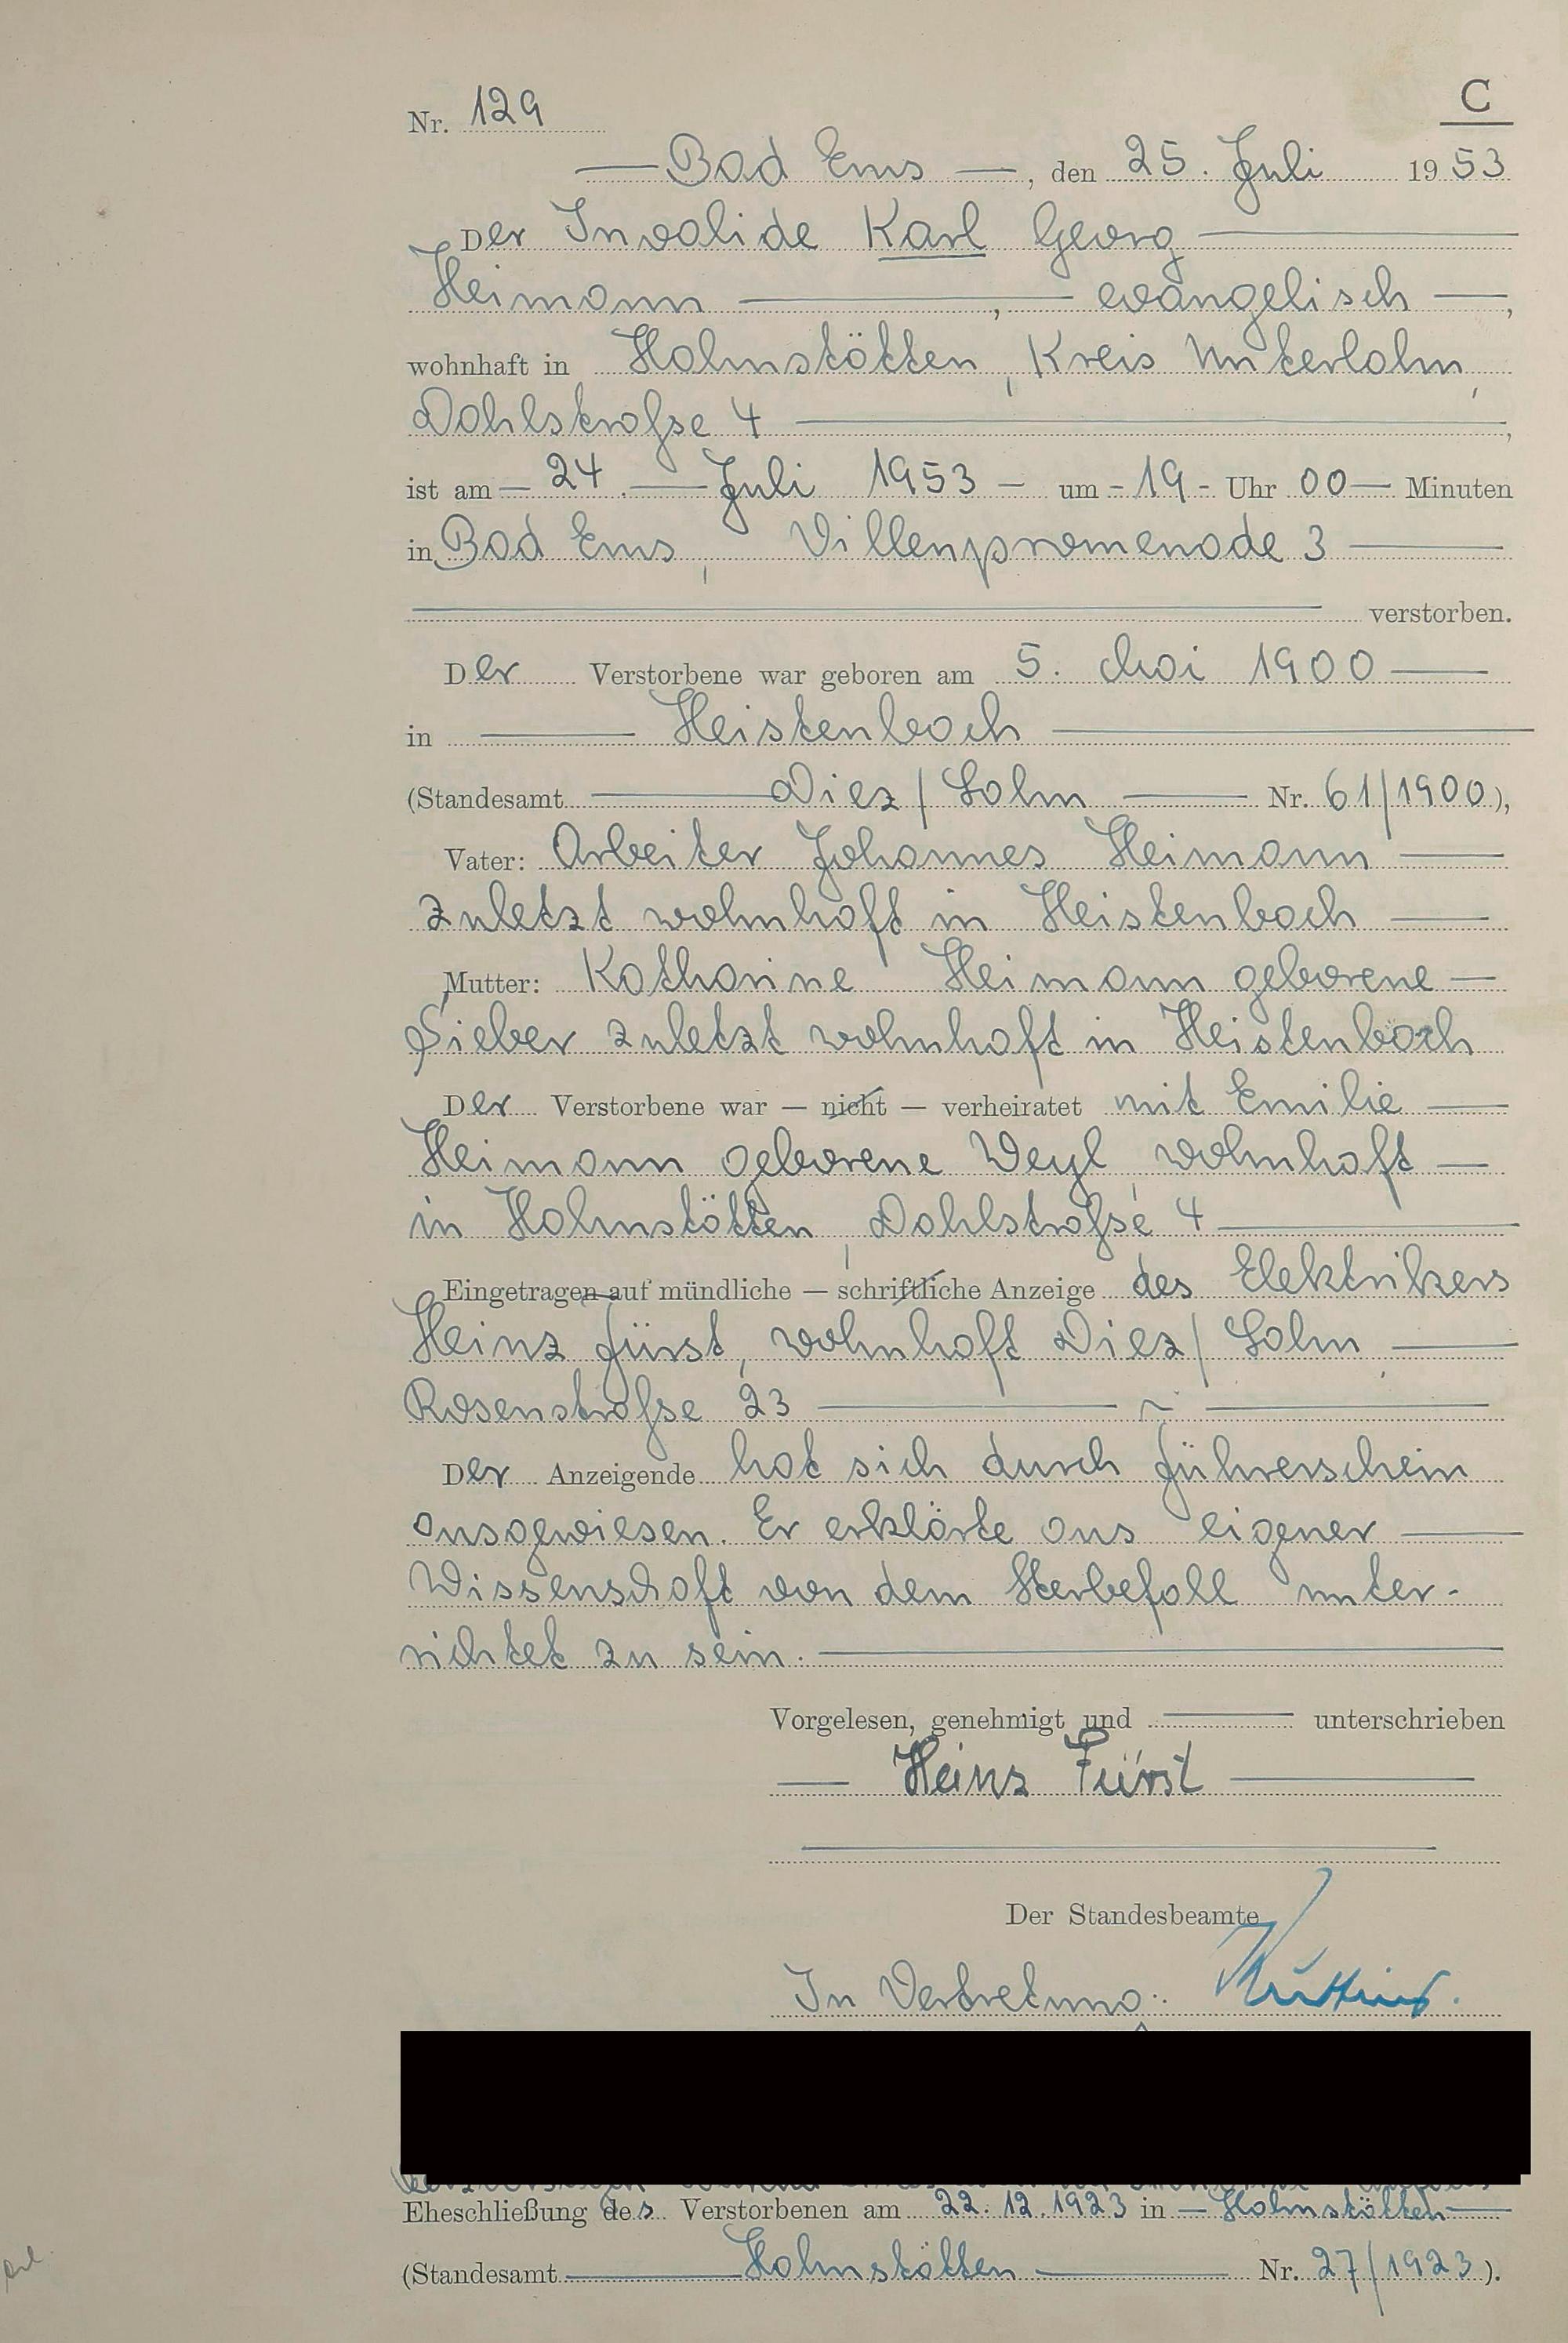 C
Nr. 129
Bad Ems, den 25. Juli 1953
Der Invalide Karl Georg
Heimann, evangelisch,
wohnhaft in Hahnstätten, Kreis Unterlahn,
Dahlstraße 4,
ist am 24. Juli 1953 um 19 Uhr 00 Minuten
in Bad Ems, Villenpromenade 3
verstorben.
Der Verstorbene war geboren am 5. Mai 1900
in Heistenbach
(Standesamt Diez/Lahn Nr. 61/1900),
Vater: Arbeiter Johannes Heimann
zuletzt wohnhaft in Heistenbach
Mutter: Katharine Heimann geborene
Sieber, zuletzt wohnhaft in Heistenbach
Der Verstorbene war — nicht — verheiratet mit Emilie
Heimann geborene Weyl, wohnhaft
in Hahnstätten, Dahlstraße 4
Eingetragen auf mündliche — schriftliche Anzeige des Elektrikers
Heinz Fürst, wohnhaft Diez/Lahn,
Rosenstraße 23
Der Anzeigende hat sich durch Führerschein
ausgewiesen. Er erklärte aus eigener
Wissenschaft von dem Sterbefall unter-
richtet zu sein.
Vorgelesen, genehmigt und unterschrieben
Heinz Fürst
Der Standesbeamte
In Vertretung:
Eheschließung des Verstorbenen am 22.12.1923 in Hahnstätten
(Standesamt Hahnstätten Nr. 27/1923).